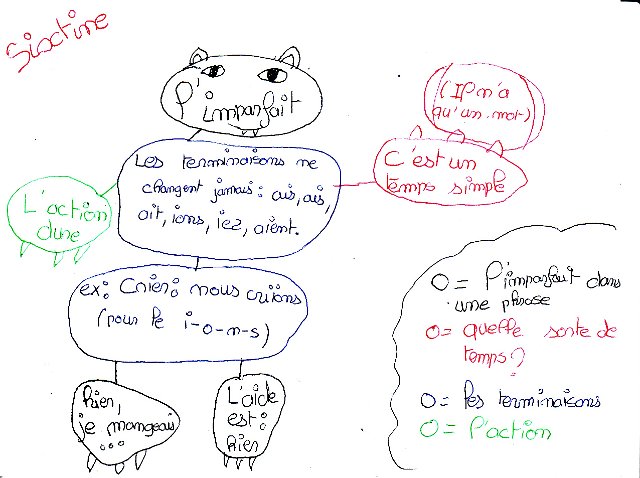 Sixtine
l'imparfait
(Il n'a
qu'un mot)
C'est un
temps simple
Les terminaisons ne
changent jamais : ais, ais,
ait, ions, iez, aient.
L'action
dure
ex: Crier: nous criions
(pour le i-o-n-s)
hier,
je mangeais
...
L'aide
est :
hier
O = l'imparfait dans
une phrase
O = quelle sorte de
temps?
O = les terminaisons
O = l'action